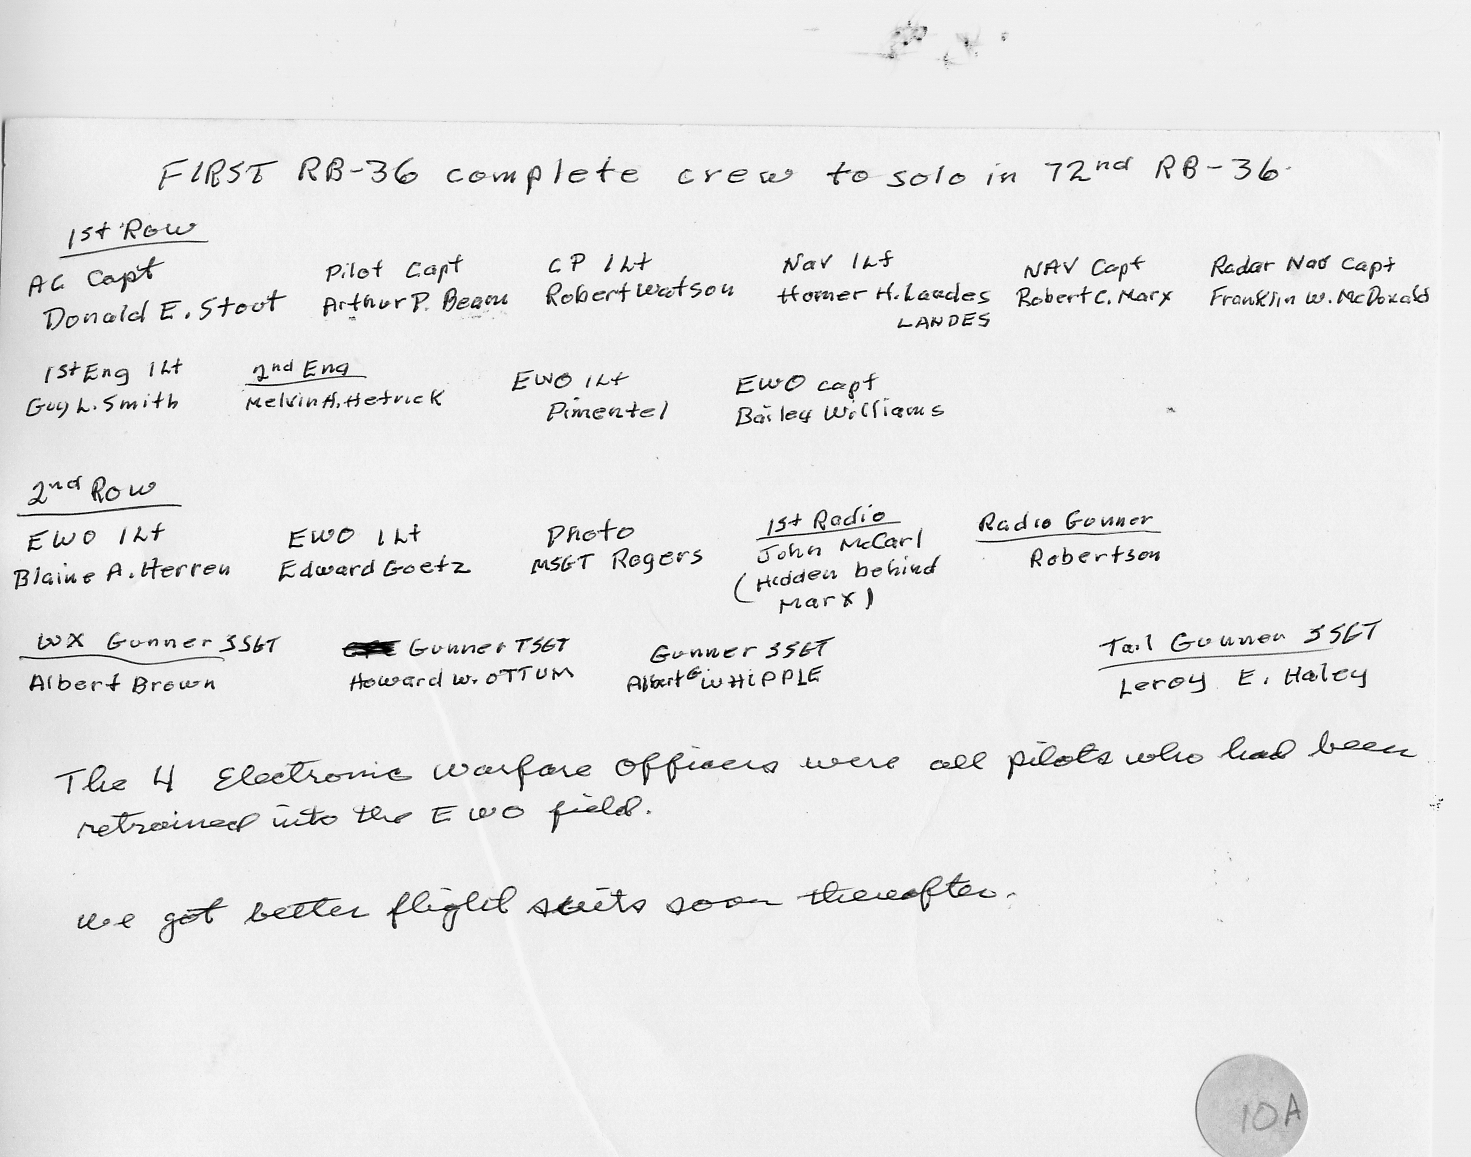 FIRST RB-36 complete crew to solo in 72nd RB-36.
1st Row
AC Capt Pilot Capt CP 1Lt Nav 1Lt NAV Capt Radar Nav Capt
Donald E. Stout Arthur P. Beam Robert Watson Homer H. Landes Robert C. Marx Franklin W. McDonald
LANDES
1st Eng 1Lt 2nd Eng EWO 1Lt EWO capt
Guy L. Smith Melvin H. Hetrick Pimentel Bailey Williams
2nd Row
EWO 1Lt EWO 1Lt Photo 1st Radio Radio Gunner
Blaine A. Herren Edward Goetz MSGT Rogers John McCarl Robertson
(Hidden behind
Marx)
WX Gunner SSGT Gunner TSGT Gunner SSGT Tail Gunner SSGT
Albert Brown Howard W. OTTUM Albert G WHIPPLE Leroy E. Haley
The 4 Electronic Warfare Officers were all pilots who had been
retrained into the EWO field.
We got better flight suits soon thereafter.
10A